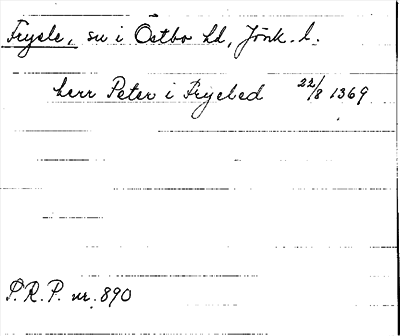 Fryele, sn i Östbo hd, Jönk. l.
herr Peter i Fryeled 22/8 1369
P.R.P. nr. 890